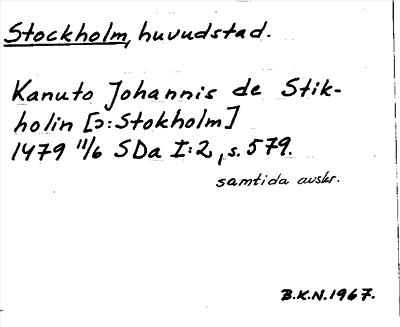 Stockholm, huvudstad.
Kanuto Johannis de Stik-
holin [ɔ: Stokholm]
1479 11/6 SDa I:2, s. 579.
samtida avskr.
B.K.N. 1967.